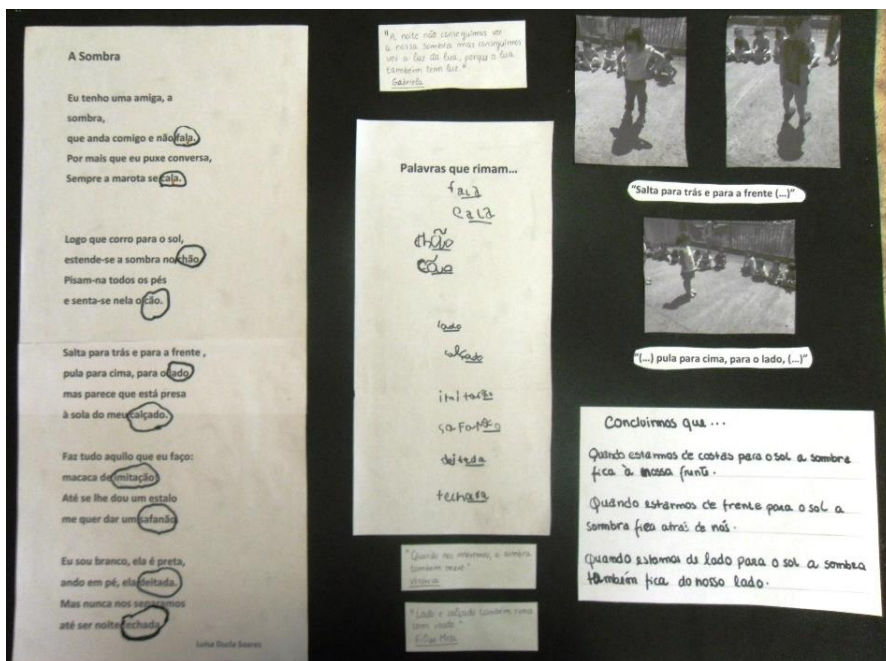 A Sombra
Eu tenho uma amiga, a
sombra,
que anda comigo e não fala.
Por mais que eu puxe conversa,
Sempre a marota se cala.
Logo que corro para o sol,
estende-se a sombra no chão
Pisam-na todos os pés
e senta-se nela o cão.
Salta para trás e para a frente ,
pula para cima, para o lado
mas parece que está presa
à sola do meu calçado.
Faz tudo aquilo que eu faço:
macaca de imitação
Até se lhe dou um estalo
me quer dar um safanão
Eu sou branco, ela é preta,
ando em pé, ela deitada.
Mas nunca nos separamos
até ser noite fechada
Luísa Ducla Soares
"A noite não conseguimos ver
a nossa sombra mas conseguimos
ver a luz da lua, porque a lua
também tem luz."
Gabriela
Palavras que rimam...
fala
cala
chão
cão
lado
calçado
imitação
safanão
deitada
fechada
"Quando nos mexemos, a sombra
também mexe"
"Lado e calçado também rima
com"
"Salta para trás e para a frente (...)"
"(...) pula para cima, para o lado, (...)"
Concluimos que ...
Quando estamos de costas para o sol a sombra
fica à nossa frente.
Quando estarmos de frente para o sol a
sombra fica atrás de nós.
Quando estamos de lado para o sol a sombra
também fica do nosso lado.